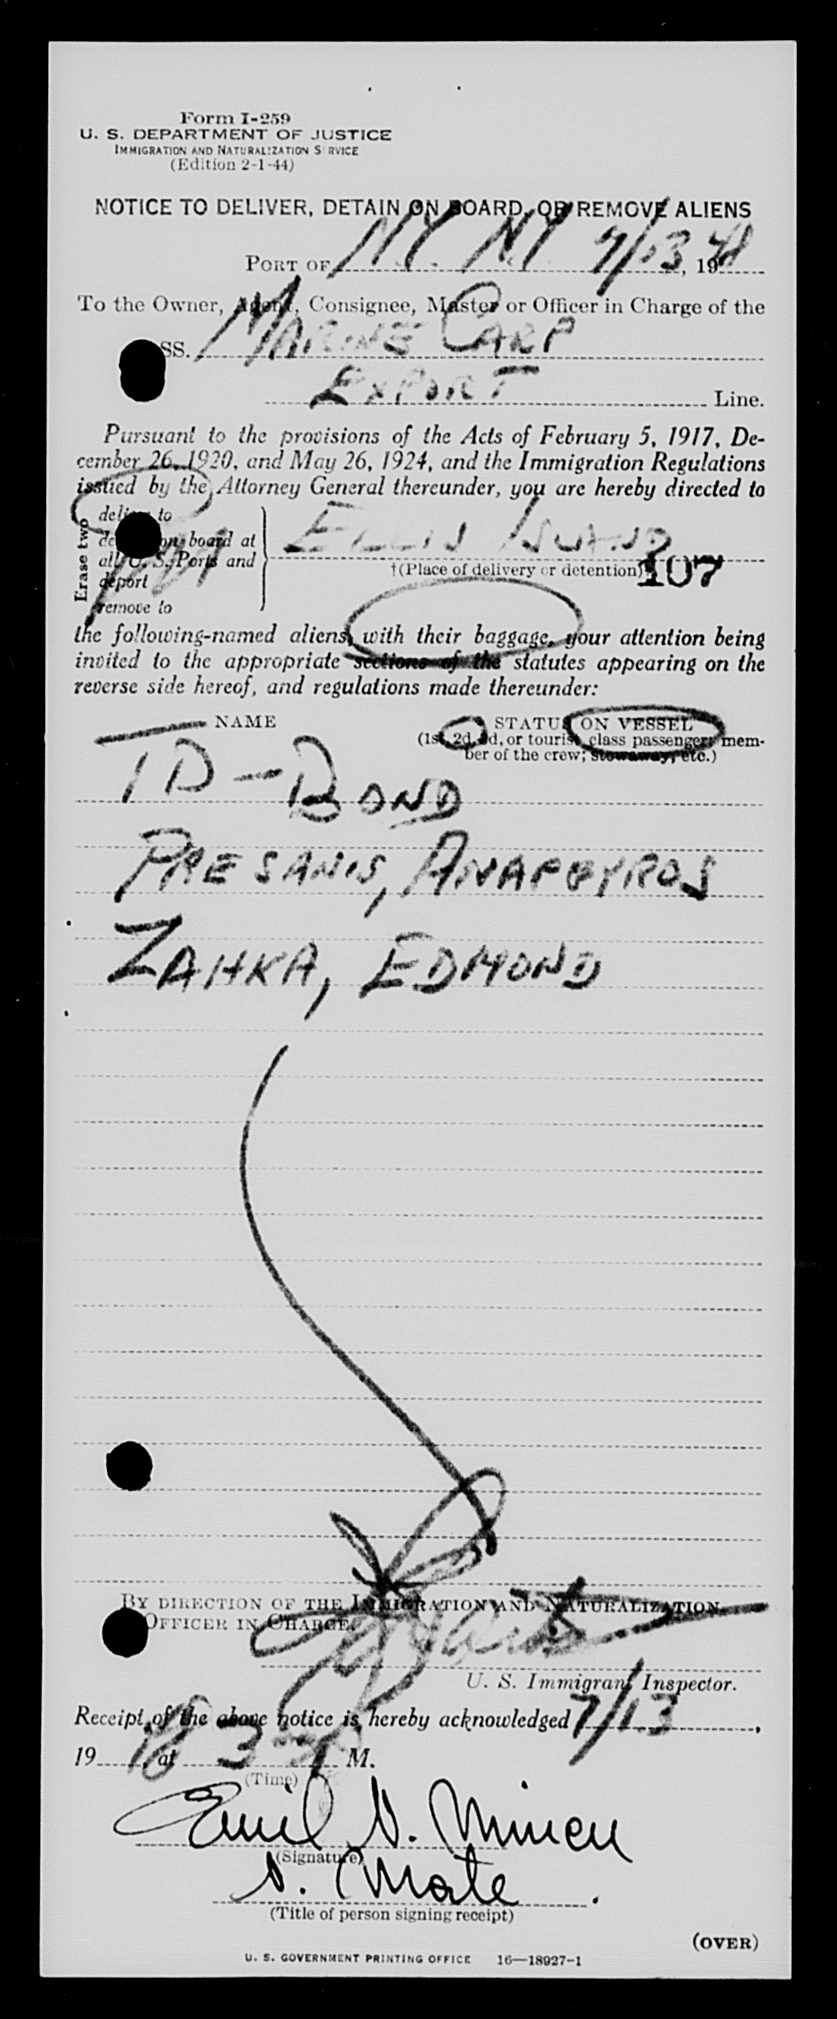 Form I-259
U. S. DEPARTMENT OF JUSTICE
IMMIGRATION AND NATURALIZATION SERVICE
(Edition 2-1-44)
NOTICE TO DELIVER, DETAIN ON BOARD, OR REMOVE ALIENS
PORT OF N.Y. N.Y. 7/13, 1948
To the Owner, Agent, Consignee, Master or Officer in Charge of the
SS. MARINE CARP
EXPORT Line.
Pursuant to the provisions of the Acts of February 5, 1917, De-
cember 26, 1920, and May 26, 1924, and the Immigration Regulations
issued by the Attorney General thereunder, you are hereby directed to
Erase two
deliver to
detain on board at
all U. S. Ports and
deport
remove to
ELLIS ISLAND
†(Place of delivery or detention)
107
the following-named aliens, with their baggage, your attention being
invited to the appropriate sections of the statutes appearing on the
reverse side hereof, and regulations made thereunder:
NAME STATUS ON VESSEL
(1st, 2d, 3d, or tourist class passenger; mem-
ber of the crew; stowaway, etc.)
TD - BOND
PRESANIS, ANARGYROS
ZAHKA, EDMOND
BY DIRECTION OF THE IMMIGRATION AND NATURALIZATION
OFFICER IN CHARGE.
U. S. Immigrant Inspector.
Receipt of the above notice is hereby acknowledged 7/13,
1948 at 3 M.
(Time)
Emil
(Signature)
S. Mate
(Title of person signing receipt)
(OVER)
U. S. GOVERNMENT PRINTING OFFICE 16—18927-1